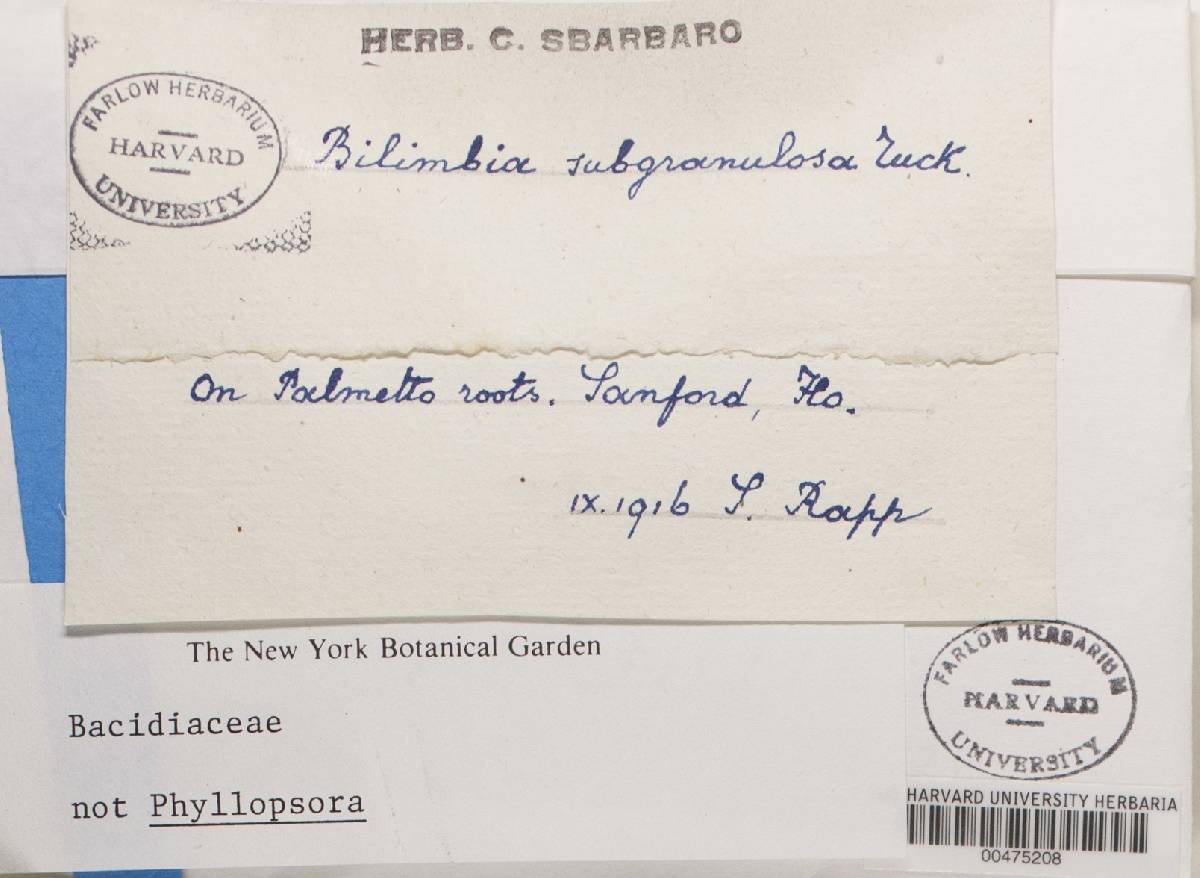 HERB. C. SBARBARO
FARLOW HERBARIUM
HARVARD
UNIVERSITY
Bilimbia subgranulosa Tuck.
On Palmetto roots. Sanford, Flo.
IX.1916 S. Rapp
The New York Botanical Garden
Bacidiaceae
not Phyllopsora
FARLOW HERBARIUM
HARVARD
UNIVERSITY
HARVARD UNIVERSITY HERBARIA
00475208